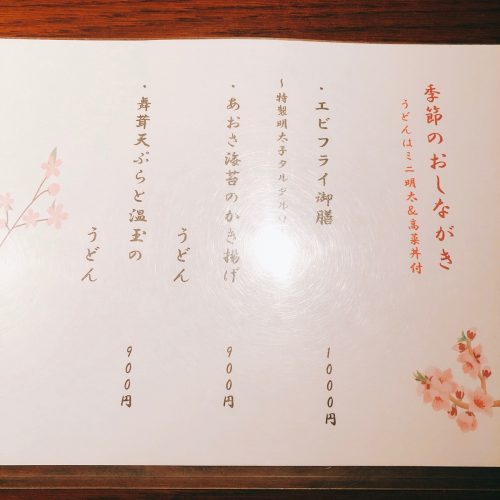 季節のおしながき
うどんはミニ明太&高菜丼付
・エビフライ御膳
1000円
〜特製明太子タルタル
・あおさ海苔のかき揚げ
うどん
900円
・舞茸天ぷらと温玉の
うどん
900円